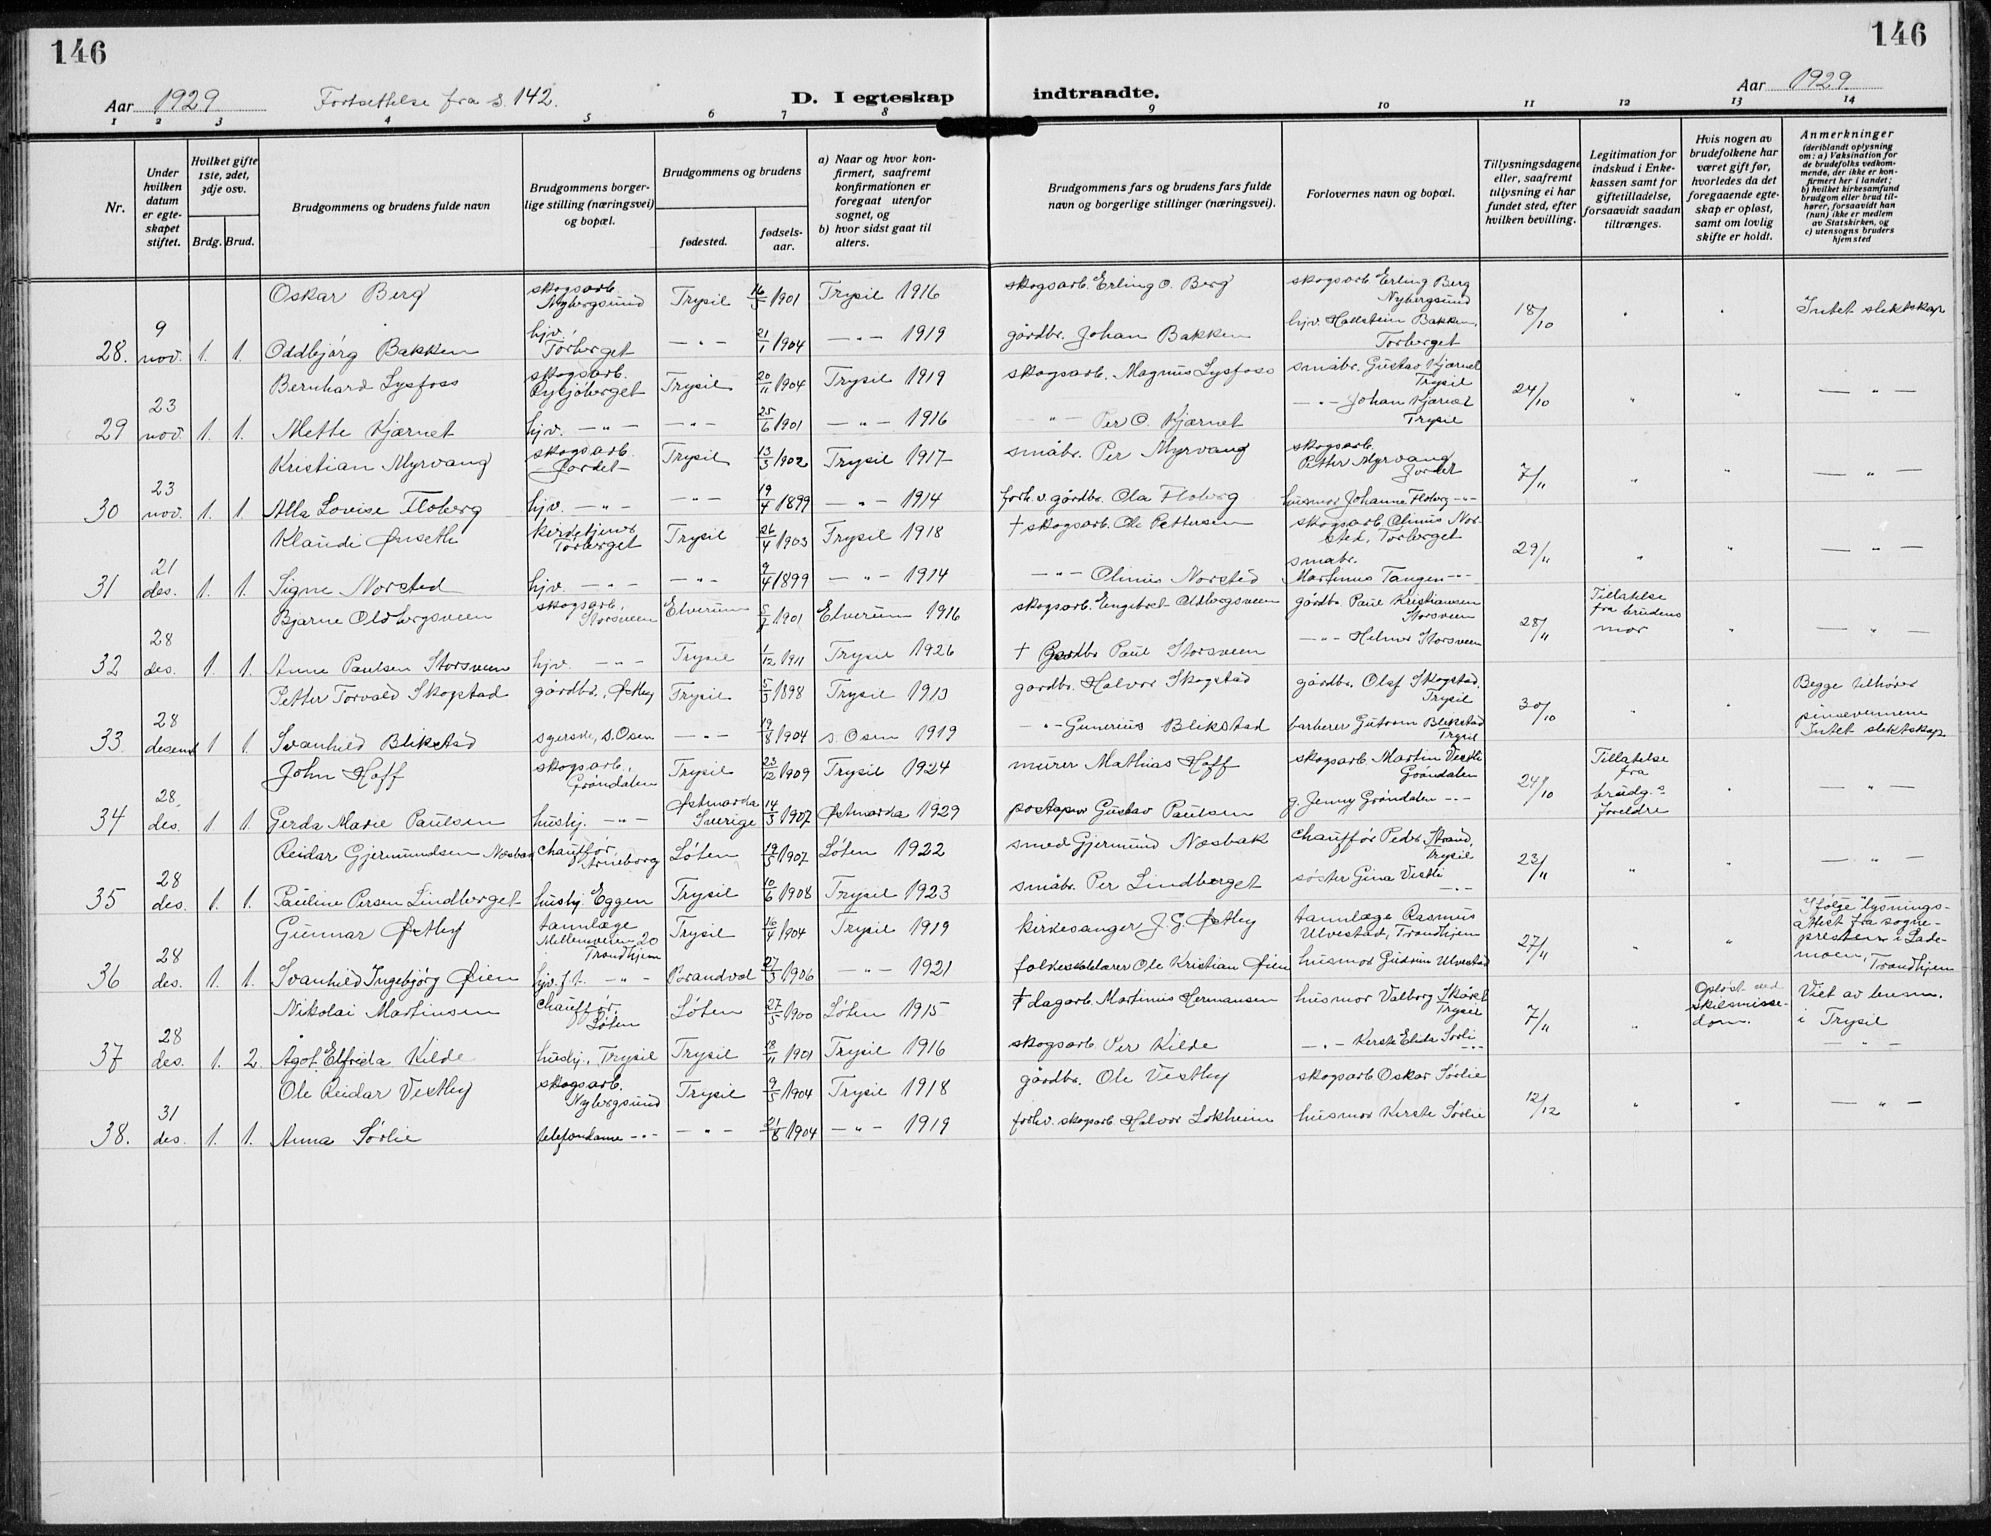 146
146
Aar 1929
Fortsettelse fra s. 142.
D. I egteskap
indtraadte.
Aar 1929
1 2 3 4 5 6 7 8 9 10 11 12 13 14
Nr.
Under hvilken datum er egte- skapet stiftet.
Hvilket gifte 1ste, 2det, 3dje osv.
Brdg. Brud.
Brudgommens og brudens fulde navn
Brudgommens borger- lige stilling (næringsvei) og bopæl.
Brudgommens og brudens
fødested.
fødsels- aar.
a) Naar og hvor kon- firmert, saafremt konfirmationen er foregaat utenfor sognet, og
b) hvor sidst gaat til alters.
Brudgommens fars og brudens fars fulde navn og borgerlige stillinger (næringsvei).
Forlovernes navn og bopæl.
Tillysningsdagene eller, saafremt tillysning ei har fundet sted, efter hvilken bevilling.
Legitimation for indskud i Enke- kassen samt for giftetilladelse, forsaavidt saadan tiltrænges.
Hvis nogen av brudefolkene har været gift før, hvorledes da det foregaaende egte- skap er opløst, samt om lovlig skifte er holdt.
Anmerkninger (deriblandt oplysning om: a) Vaksination for de brudefolks vedkom- mende, der ikke er kon- firmert her i landet; b) hvilket kirkesamfund brudgom eller brud til- hører, forsaavidt han (hun) ikke er medlem av Statskirken, og c) utensogns bruders hjemsted
Oskar Berg skogsarb. Nybergsund Trysil 16/3 1901 Trysil 1916 skogsarb. Erling O. Berg skogsarb. Erling Berg Nybergsund
28. 9 nov. 1. 1. Oddbjørg Bakken hjv. Torberget — " — 21/1 1904 — " — 1919 gårdbr. Johan Bakken hjv. Hallstein Bakken, Torberget 18/10 " " Intet slektskap
Bernhard Lysfoss skogsarb. Rysjøberget Trysil 20/11 1904 Trysil 1919 skogsarb. Magnus Lysfoss småbr. Gustav Kjærnet Trysil
29 23 nov. 1. 1. Mette Kjærnet hjv. — " — — " — 25/6 1901 — " — 1916 " — Per O. Kjærnet — " — Johan Kjærnet Trysil 24/10 " " — " —
Kristian Myrvang skogsarb. Jordet Trysil 13/3 1902 Trysil 1917 småbr. Per Myrvang skogsarb. Petter Myrvang Jordet
30 23 nov. 1. 1. Alla Lovise Floberg hjv. — " — — " — 19/4 1899 — " — 1914 forh.v. gårdbr. Ola Floberg husmor Johanne Floberg — " — 7/11 " " — " —
Klaudi Ørseth kirketjener Torberget Trysil 26/4 1903 Trysil 1918 † skogsarb. Ole Pettersen skogsarb. Olinius Norsted, Torberget
31 21 des. 1. 1. Signe Norsted hjv. — " — — " — 9/4 1899 — " — 1914 — " — Olinius Norsted småbr. Martinus Tangen — " — 29/11 " " — " —
Bjarne Oldbergsveen skogsarb. Storsveen Elverum 1901 Elverum 1916 skogsarb. Engebret Oldbergsveen gårdbr. Paul Kristiansen Storsveen
32 28 des. 1. 1. Anne Paulsen Storsveen hjv. — " — Trysil 1/12 1911 Trysil 1926 † Gårdbr. Paul Storsveen — " — Helmer Storsveen 28/11 Tillatelse fra brudens mor " — " —
Petter Torvald Skogstad gårdbr., Østby Trysil 5/3 1898 Trysil 1913 gårdbr. Halvor Skogstad gårdbr. Olaf Skogstad, Trysil
33. 28 desemb 1 1 Svanhild Blikstad syerske, s. Osen — " — 19/8 1904 s. Osen 1919 — " — Gunerius Blikstad barberer Gutorm Blikstad Trysil 30/10 " " Begge tilhører pinsevennene Intet slektskap
John Hoff skogsarb., Grøndalen Trysil 23/12 1909 Trysil 1924 murer Mathias Hoff skogsarb. Martin Vestli Grøndalen
34 28. des. 1 1 Gerda Marie Paulsen hushj. — " — Østmarka Sverige 14/3 1907 Østmarka 1929 Gustav Paulsen g. Jenny Grøndalen — " — 24/10 Tillatelse fra brudg.s foreldre " — " —
Reidar Gjermundsen Næsbak Chauffør, Arneborg Løten 19/5 1907 Løten 1922 smed Gjermund Næsbak Chauffør Peder Strand, Trysil
35 28 des. 1. 1. Pauline Persen Lindberget hushj. Eggen Trysil 10/6 1908 Trysil 1923 småbr. Per Lindberget søster Gina Vestli — " — 23/11 " " — " —
Gunnar Østby tannlæge Mellemveien 20 Trondhjem Trysil 16/4 1904 Trysil 1919 kirkesanger J. G. Østby tannlæge Rasmus Ulvestad, Trondhjem
36 28 des. 1. 1. Svanhild Ingebjørg Øien — " Brandvol 27/3 1906 — " — 1921 folkeskolelærer Ole Kristian Øien husmor Gudrun Ulvestad 27/11 " " Ifølge lysnings- attest fra sogne- presten i Lade- moen, Trondhjem
Nikolai Martinsen Chauffør, Løten Løten 27/5 1900 Løten 1915 † dagarb. Martinus Hermansen husmor Valborg Skåret Trysil
37 28 des. 1. 2 Ågot Elfrida Kilde hushj., Trysil Trysil 18/11 1901 Trysil 1916 skogsarb. Per Kilde — " — Kerste Elida Sørli — " — 7/11 " Opløst ved skilsmisse- dom. Viet av lensm. i Trysil — " —
Ole Reidar Vestby skogsarb. Nybergsund Trysil 9/5 1904 Trysil 1918 gårdbr. Ole Vestby skogsarb. Oskar Sørlie
38. 31 des. 1. 1. Anna Sørlie telefondame — " — — " — 21/8 1904 — " — 1919 forh.v. skogsarb. Halvor Lokheim husmor Kerste Sørlie 12/12 " " — " —